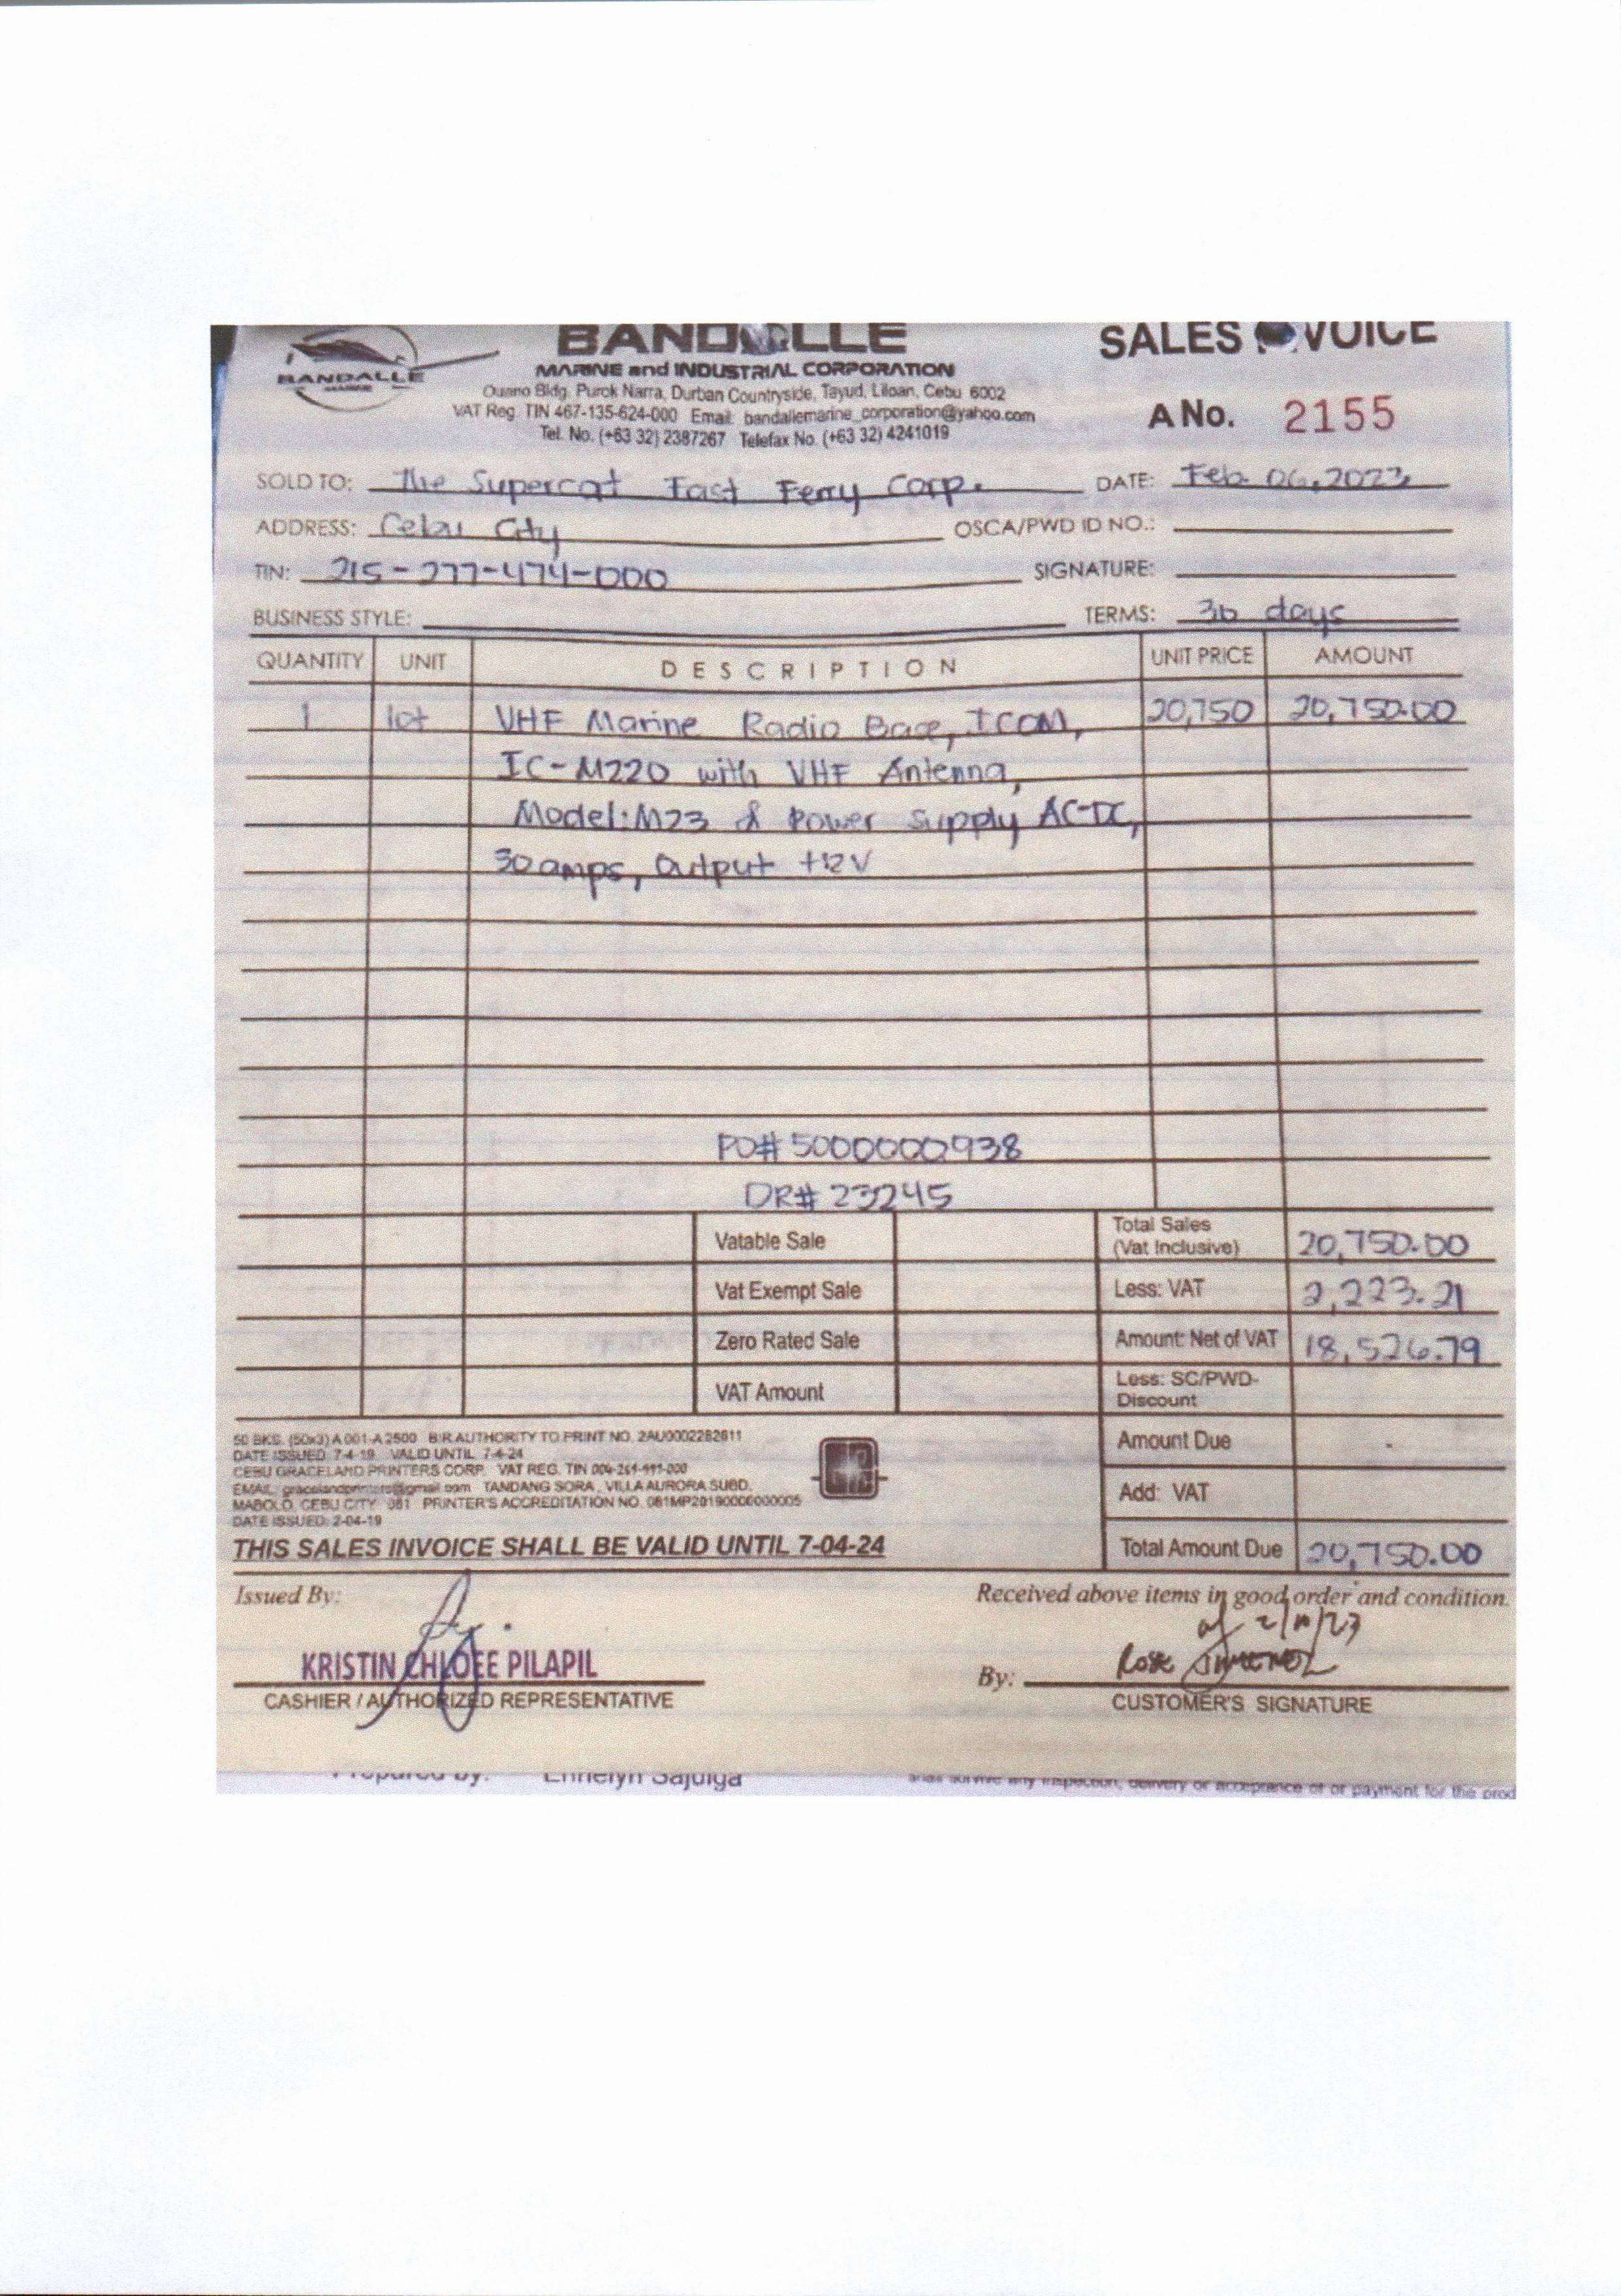 BANDALLE
MARINE
BANDALLE
MARINE and INDUSTRIAL CORPORATION
Ouano Bldg. Purok Narra, Durban Countryside, Tayud, Liloan, Cebu 6002
VAT Reg. TIN 467-135-624-000 Email: bandallemarine_corporation@yahoo.com
Tel. No. (+63 32) 2387267 Telefax No. (+63 32) 4241019
SALES INVOICE
A No. 2155
SOLD TO: The Supercat Fast Ferry Corp. DATE: Feb. 06, 2023
ADDRESS: Cebu City OSCA/PWD ID NO.:
TIN: 215-277-474-000 SIGNATURE:
BUSINESS STYLE: TERMS: 30 days
QUANTITY UNIT DESCRIPTION UNIT PRICE AMOUNT
1 lot VHF Marine Radio Base, ICOM, 20,750 20,750.00
IC-M220 with VHF Antenna,
Model: M23 & Power Supply AC-DC,
30 amps, Output +12V
PO# 5000000938
DR# 23245
Vatable Sale Total Sales (Vat Inclusive) 20,750.00
Vat Exempt Sale Less: VAT 2,223.21
Zero Rated Sale Amount: Net of VAT 18,526.79
VAT Amount Less: SC/PWD-Discount
Amount Due -
Add: VAT
Total Amount Due 20,750.00
50 BKS. (50x3) A 001-A 2500 BIR AUTHORITY TO PRINT NO. 2AU0002282611
DATE ISSUED: 7-4-19 VALID UNTIL 7-4-24
CEBU GRACELAND PRINTERS CORP. VAT REG. TIN
EMAIL: gracelandprinters@gmail.com TANDANG SORA, VILLA AURORA SUBD.
MABOLO, CEBU CITY 081 PRINTER'S ACCREDITATION NO. 081MP20190000000005
DATE ISSUED: 2-04-19
THIS SALES INVOICE SHALL BE VALID UNTIL 7-04-24
Issued By: Received above items in good order and condition.
KRISTIN CHLOEE PILAPIL
CASHIER / AUTHORIZED REPRESENTATIVE
By: Rose
CUSTOMER'S SIGNATURE
Prepared by: Ennelyn Sajulga
shall survive any inspection, delivery or acceptance of or payment for the prod